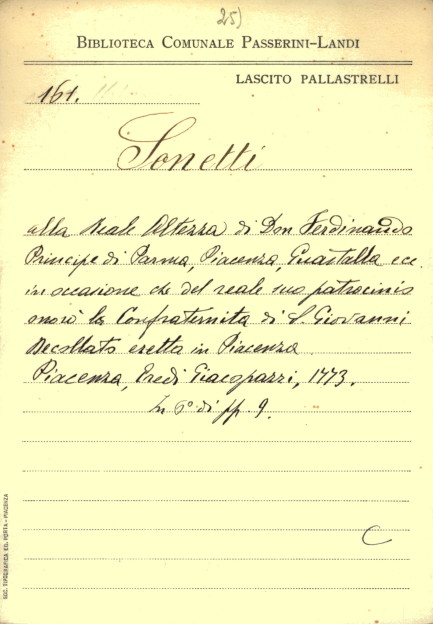 25)
BIBLIOTECA COMUNALE PASSERINI-LANDI
LASCITO PALLASTRELLI
161.
Sonetti
alla Reale Altezza di Don Ferdinando
Principe di Parma, Piacenza, Guastalla ecc.
in occasione che del reale suo patrocinio
onorò la Confraternita di S. Giovanni
Decollato eretta in Piacenza
Piacenza, Eredi Giacopazzi, 1773.
In 6° di pp. 9.
C
SOC. TIPOGRAFICA ED. PORTA - PIACENZA